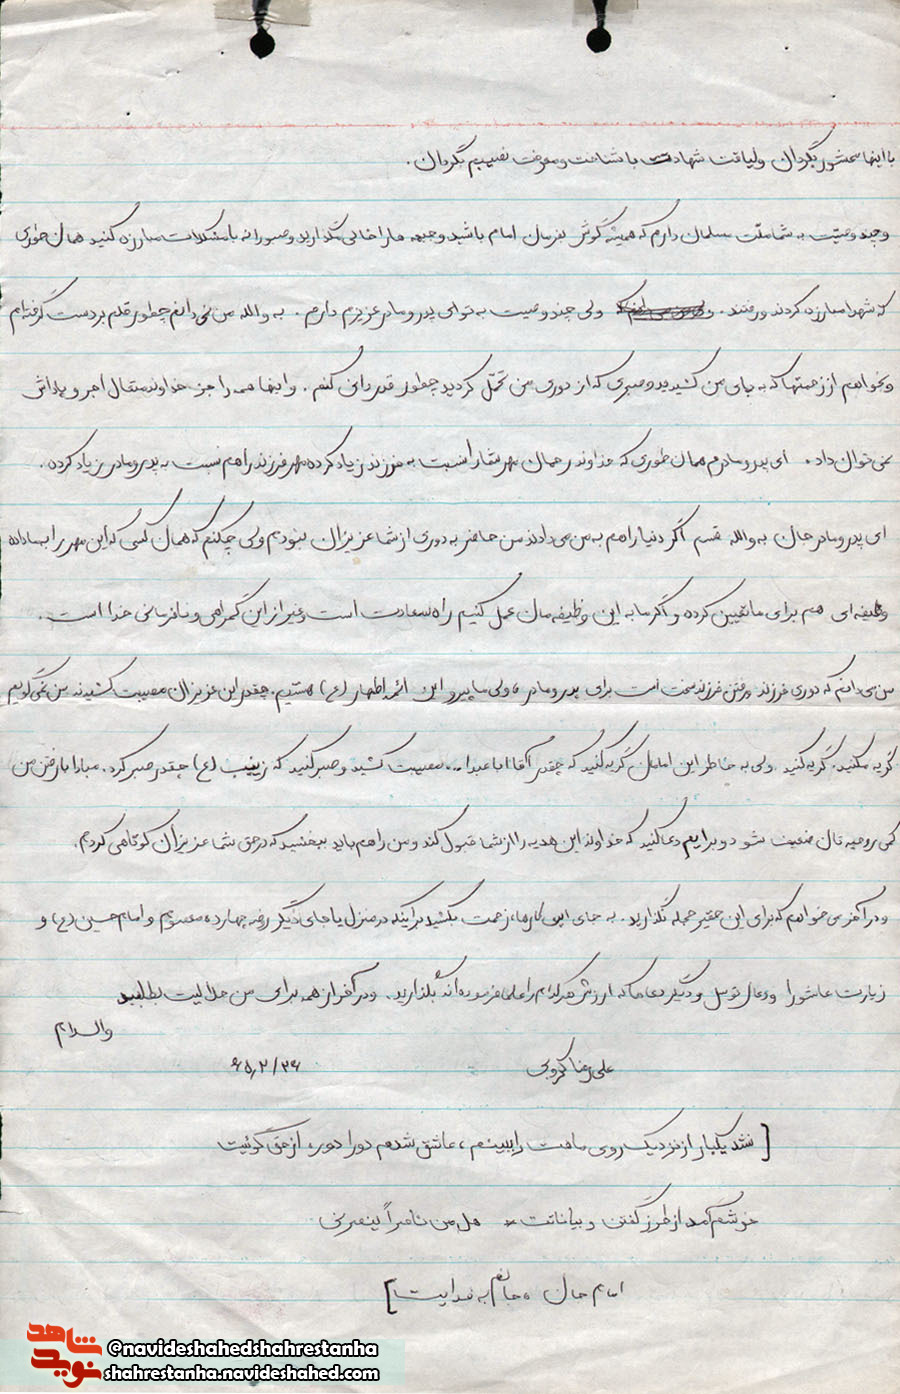 با اینها محشور بگردان ولیاقت شهادت با شناخت و معرفت نصیبم بگردان.
و چند وصیت به شما ملت مسلمان دارم که همیشه گوش بفرمان امام باشید و جبهه ها را خالی نگذارید و صبورانه با مشکلات مبارزه کنید همان طوری
که شهدا مبارزه کردند و رفتند. ولی چند وصیت به تو ای پدر و مادر عزیزم دارم. به والله من نمی دانم چطور قلم بر دست گرفته ام
و بخواهم از زحمتها که به پای من کشیدید و صبری که از دوری من تحمّل کردید چطور قدردانی کنم. و اینها همه را جز خداوند متعال اجر و پاداش
نمی توان داد. ای پدر و مادرم همان طوری که خداوند رحمان مهر شما را نسبت به فرزند زیاد کرده مهر فرزند را هم نسبت به پدر و مادر زیاد کرده.
ای پدر و مادر جان به والله قسم اگر دنیا را هم به من می دادند من حاضر به دوری از شما عزیزان نبودم ولی چکنم که همان کسی که این مهر را بما داده
وظیفه ای هم برای ما تعیین کرده و اگر ما به این وظیفه مان عمل کنیم راه سعادت است و غیر از این گمراهی و نافرمانی خدا است.
من می دانم که دوری فرزند و رفتن فرزند سخت است برای پدر و مادر، ولی ما پیرو این ائمه اطهار (ع) هستیم. چقدر این عزیزان مصیبت کشیدند من نمی گویم
گریه مکنید. گریه کنید ولی به خاطر این امامان گریه کنید که چقدر آقا ابا عبدا... مصیبت کشید و صبر کنید که زینب (ع) چقدر صبر کرد. مبادا با رفتن من
کمی روحیه تان ضعیف شود و برایم دعا کنید که خداوند این هدیه را از شما قبول کند و من را هم باید ببخشید که در حق شما عزیزان کوتاهی کردم.
و در آخر می خواهم که برای این حقیر حجله نگذارید. به جای این کارها، زحمت بکشید برای اینکه در منزل یا جای دیگر روضه چهارده معصوم و امام حسین (ع) و
زیارت عاشورا و دعای توسل و دیگر دعاها که ارزش هر کدام را علما فرموده اند بگذارید. و در آخر از همه برای من حلالیت بطلبید
والسلام
علی رضا کروبی ۶۵/۲/۲۶
[ نشد یکبار از نزدیک روی ماهت را ببینم، عاشق شدم دورا دور، از حق گوئیت
خوشم آمد از طرز گفتن و بیاناتت * هل من ناصراً ینصرنی
امام جان، جانم به فدایت ]
شاهد
نوید
@navideshahedshahrestanha
shahrestanha.navideshahed.com